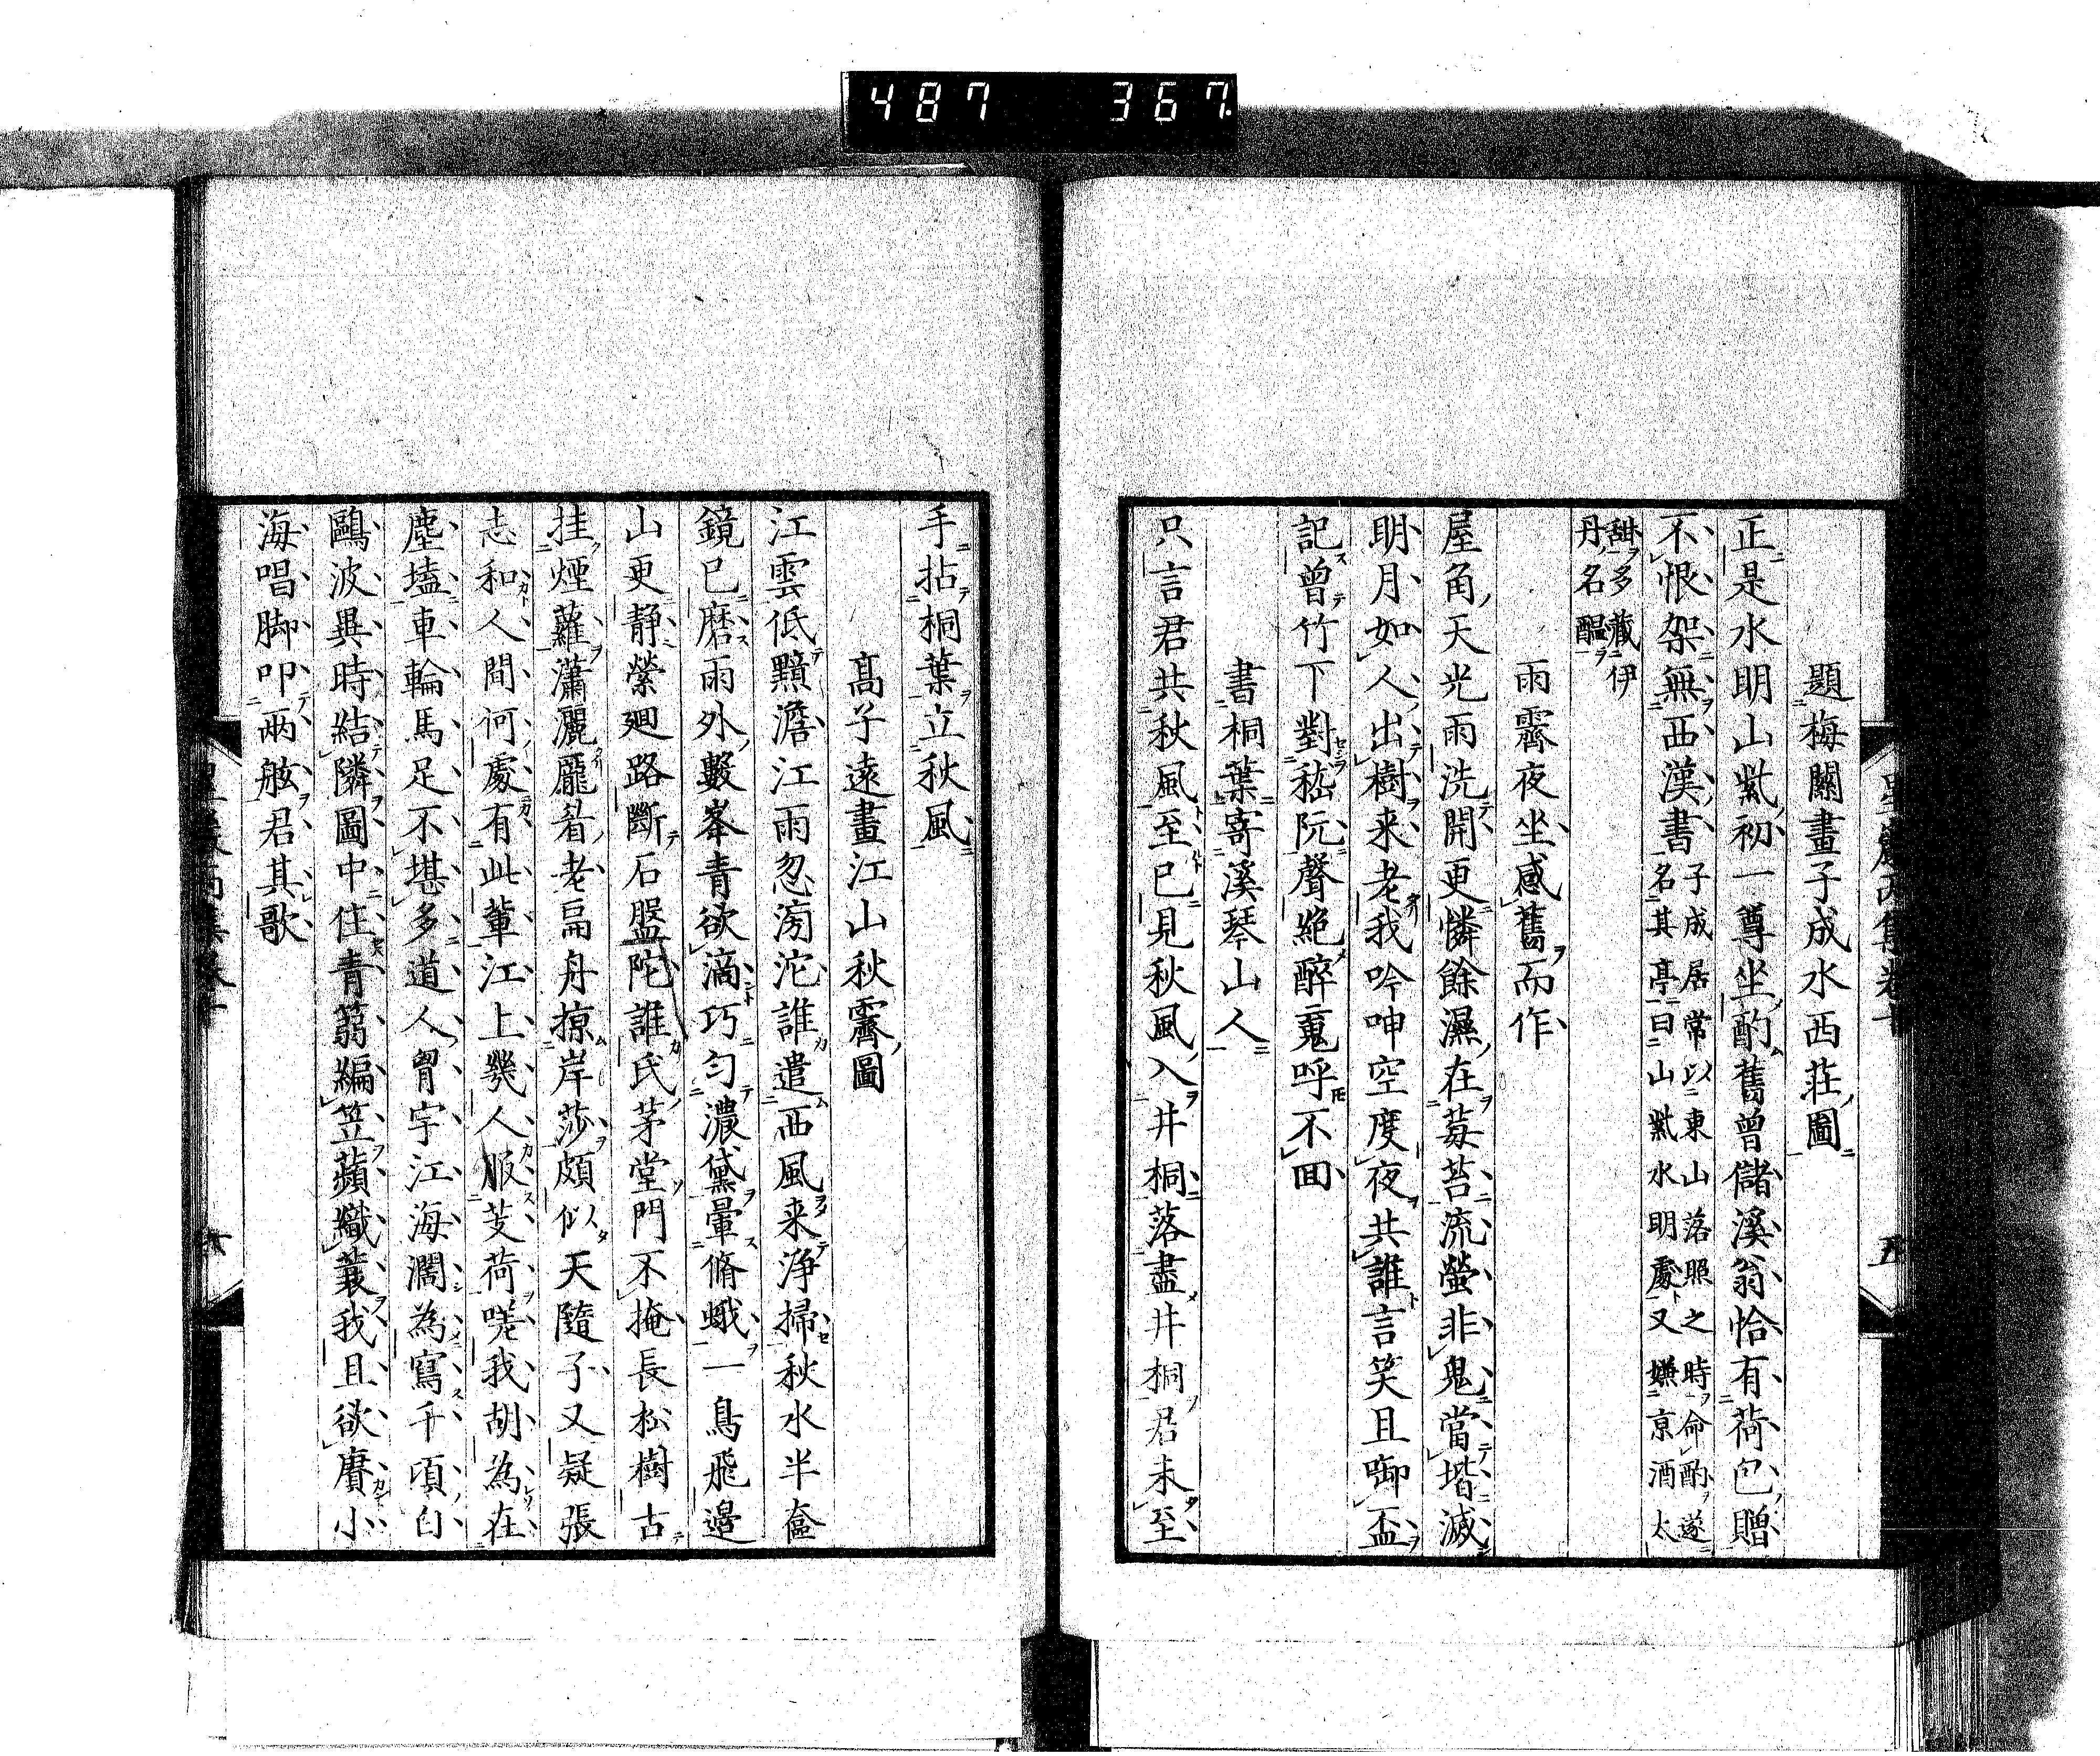 487 367
題梅關畫子成水西莊圖
正是水明山紫初一尊坐酌舊曾儲溪翁恰有荷包贈
不恨架無西漢書子成居常以東山落照之時命酌遂
名其亭曰山紫水明處又嫌京酒太
甜多藏伊
丹名醞
雨霽夜坐感舊而作
屋角天光雨洗開更憐餘濕在莓苔流螢非鬼當堦滅
明月如人出樹来老我吟呻空度夜共誰言笑且啣盃
記曾竹下對嵇阮聲絕醉䰟呼不回
書桐葉寄溪琴山人
只言君共秋風至已見秋風入井桐落盡井桐君未至
手拈桐葉立秋風
髙子遠畫江山秋霽圖
江雲低黯澹江雨忽滂沱誰遣西風来淨掃秋水半奩
鏡已磨雨外數峯青欲滴巧勻濃黛暈脩蛾一鳥飛邊
山更静縈廻路斷石盤陀誰氏茅堂門不掩長松樹古
挂煙蘿瀟灑龎眉老扁舟掠岸莎頗似天隨子又疑張
志和人間何處有此輩江上幾人服芰荷嗟我胡為在
塵壒車輪馬足不堪多道人胷宇江海濶為寫千頃白
鷗波異時結隣圖中住青篛編笠蘋織蓑我且欲賡小
海唱脚叩兩舷君其歌